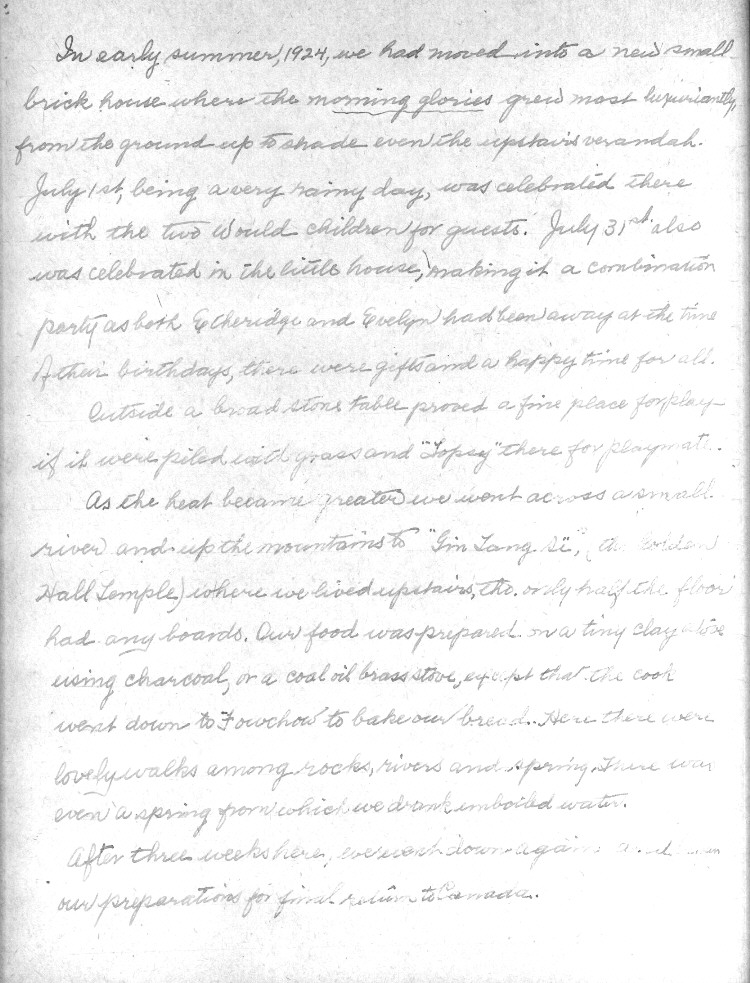 In early summer, 1924, we had moved into a new small
brick house where the morning glories grew most luxuriantly,
from the ground up to shade even the upstairs verandah.
July 1st, being a very rainy day, was celebrated there
with the two Would children for guests. July 31st also
was celebrated in the little house, making it a combination
party as both Etheridge and Evelyn had been away at the time
of their birthdays, there were gifts and a happy time for all.
Outside a broad stone table proved a fine place for play
if it were piled with grass and "Topsy" there for playmate.
As the heat became greater we went across a small
river and up the mountains to "Gin Tang Si", (the Golden
Hall Temple) where we lived upstairs, tho. only half the floor
had any boards. Our food was prepared on a tiny clay stove
using charcoal, or a coal oil brass stove, except that the cook
went down to Fowchow to bake our bread. Here there were
lovely walks among rocks, rivers and spring. There was
even a spring from which we drank unboiled water.
After three weeks here, we went down again
our preparations for final return to Canada.